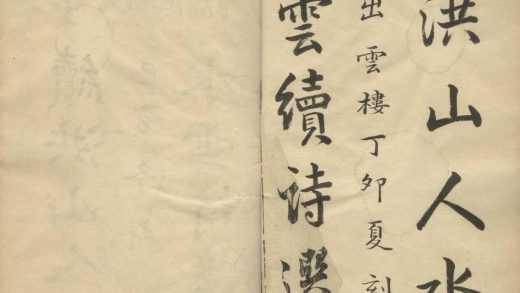 洪山人水
出雲樓丁夘夏刻
雲續詩選